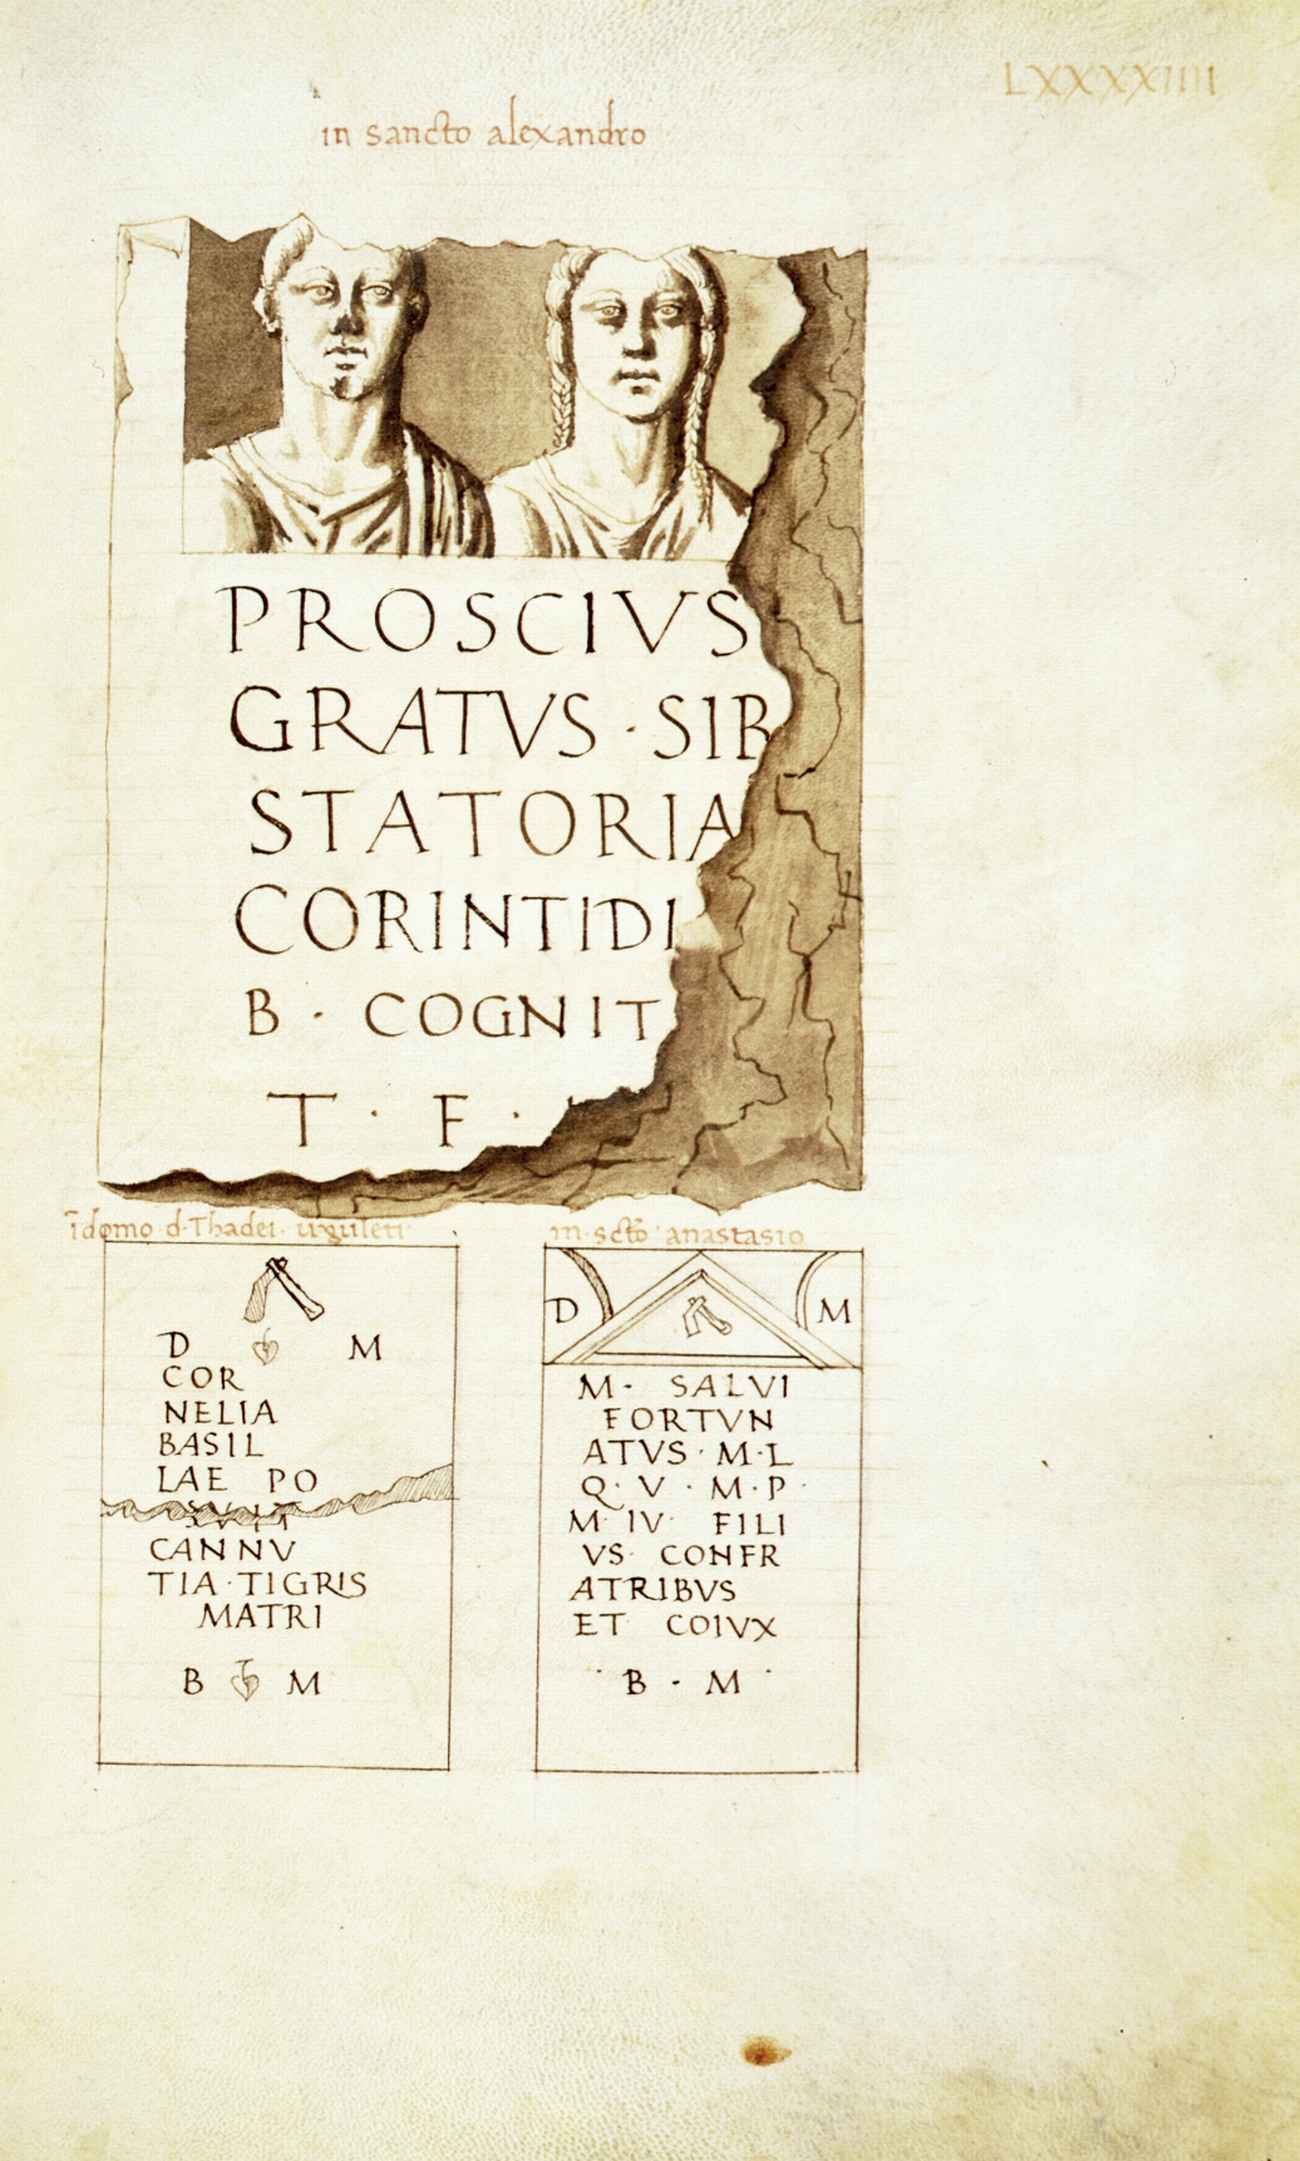 LXXXXIIII
in sancto alexandro
PROSCIVS
GRATVS · SIB
STATORIA
CORINTIDI
B · COGNIT
T · F ·
ī domo d. Thadei
D M
COR
NELIA
BASIL
LAE PO
SVIT
CANNV
TIA · TIGRIS
MATRI
B M
in scto anastasio
D M
M · SALVI
FORTVN
ATVS · M · L
Q · V · M · P ·
M · IV · FILI
VS · CONFR
ATRIBVS
ET COIVX
· B · M ·